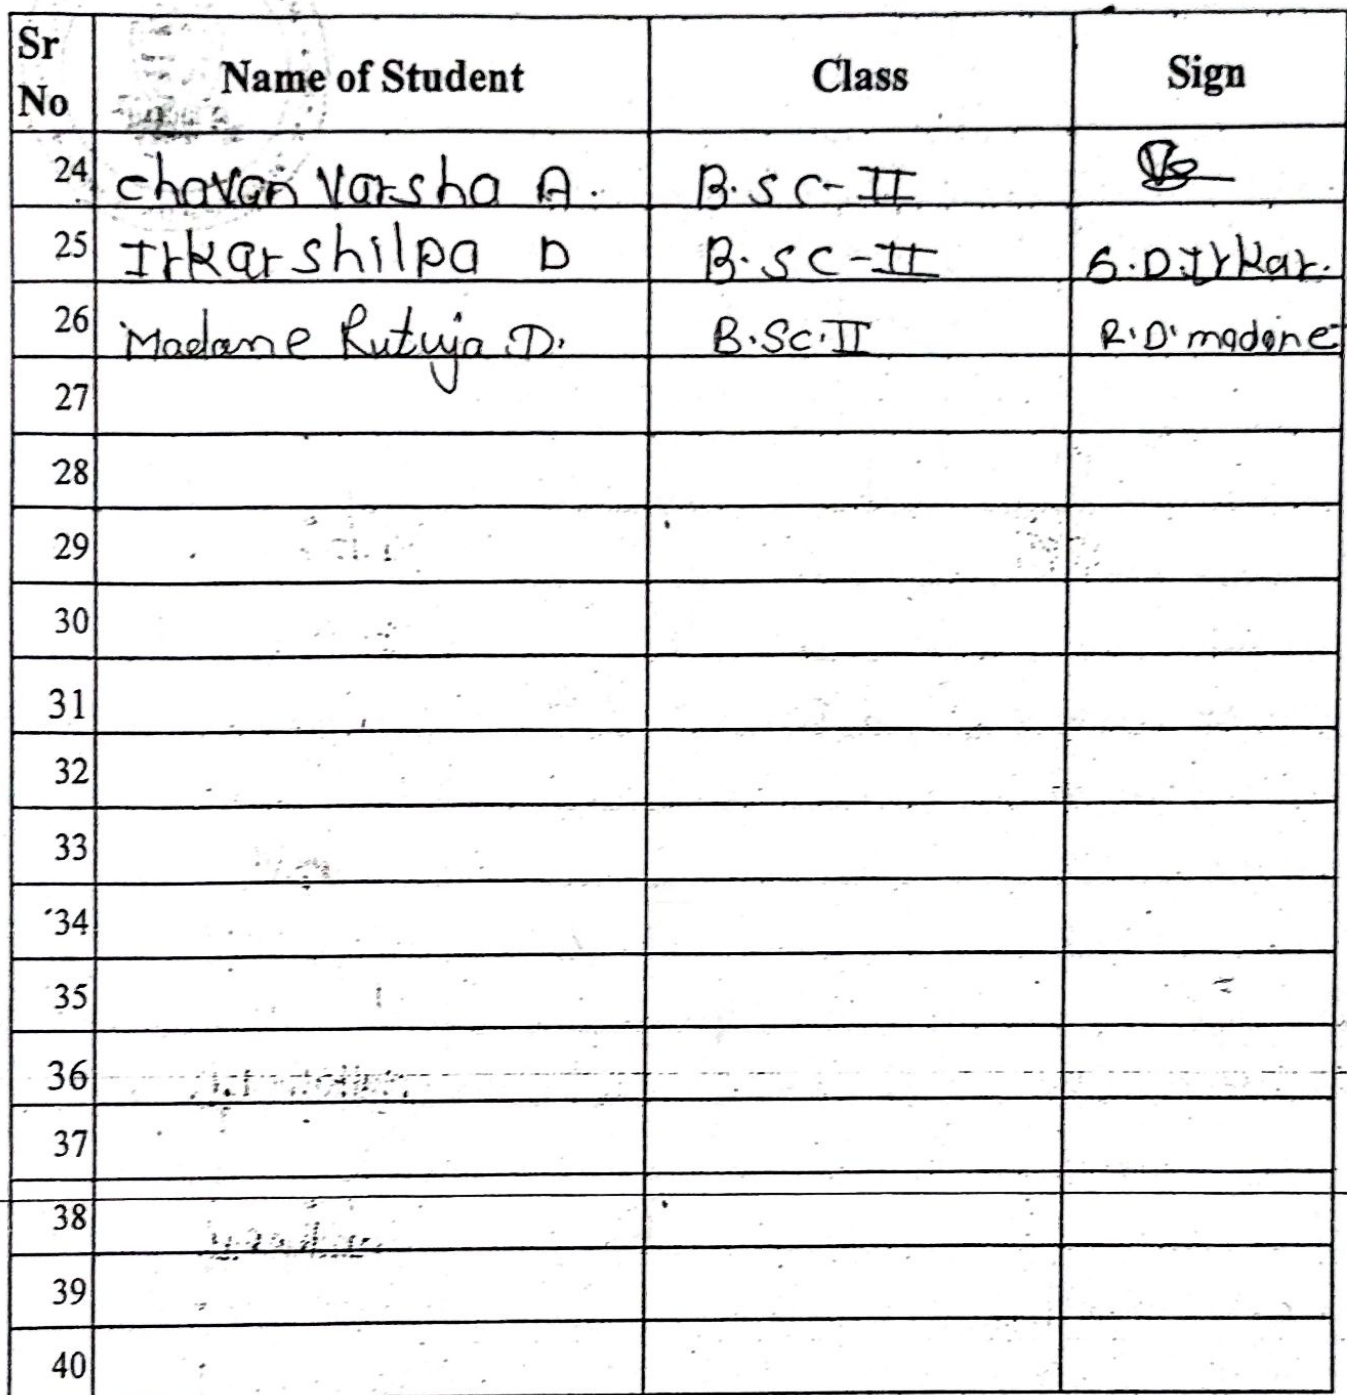 Sr No Name of Student Class Sign
24 Chavan Varsha A. B.SC-II
25 Irkar Shilpa D B.SC-II S.D.Irkar.
26 Madane Rutuja D. B.Sc.II R.D.madane
27
28
29
30
31
32
33
34
35
36
37
38
39
40